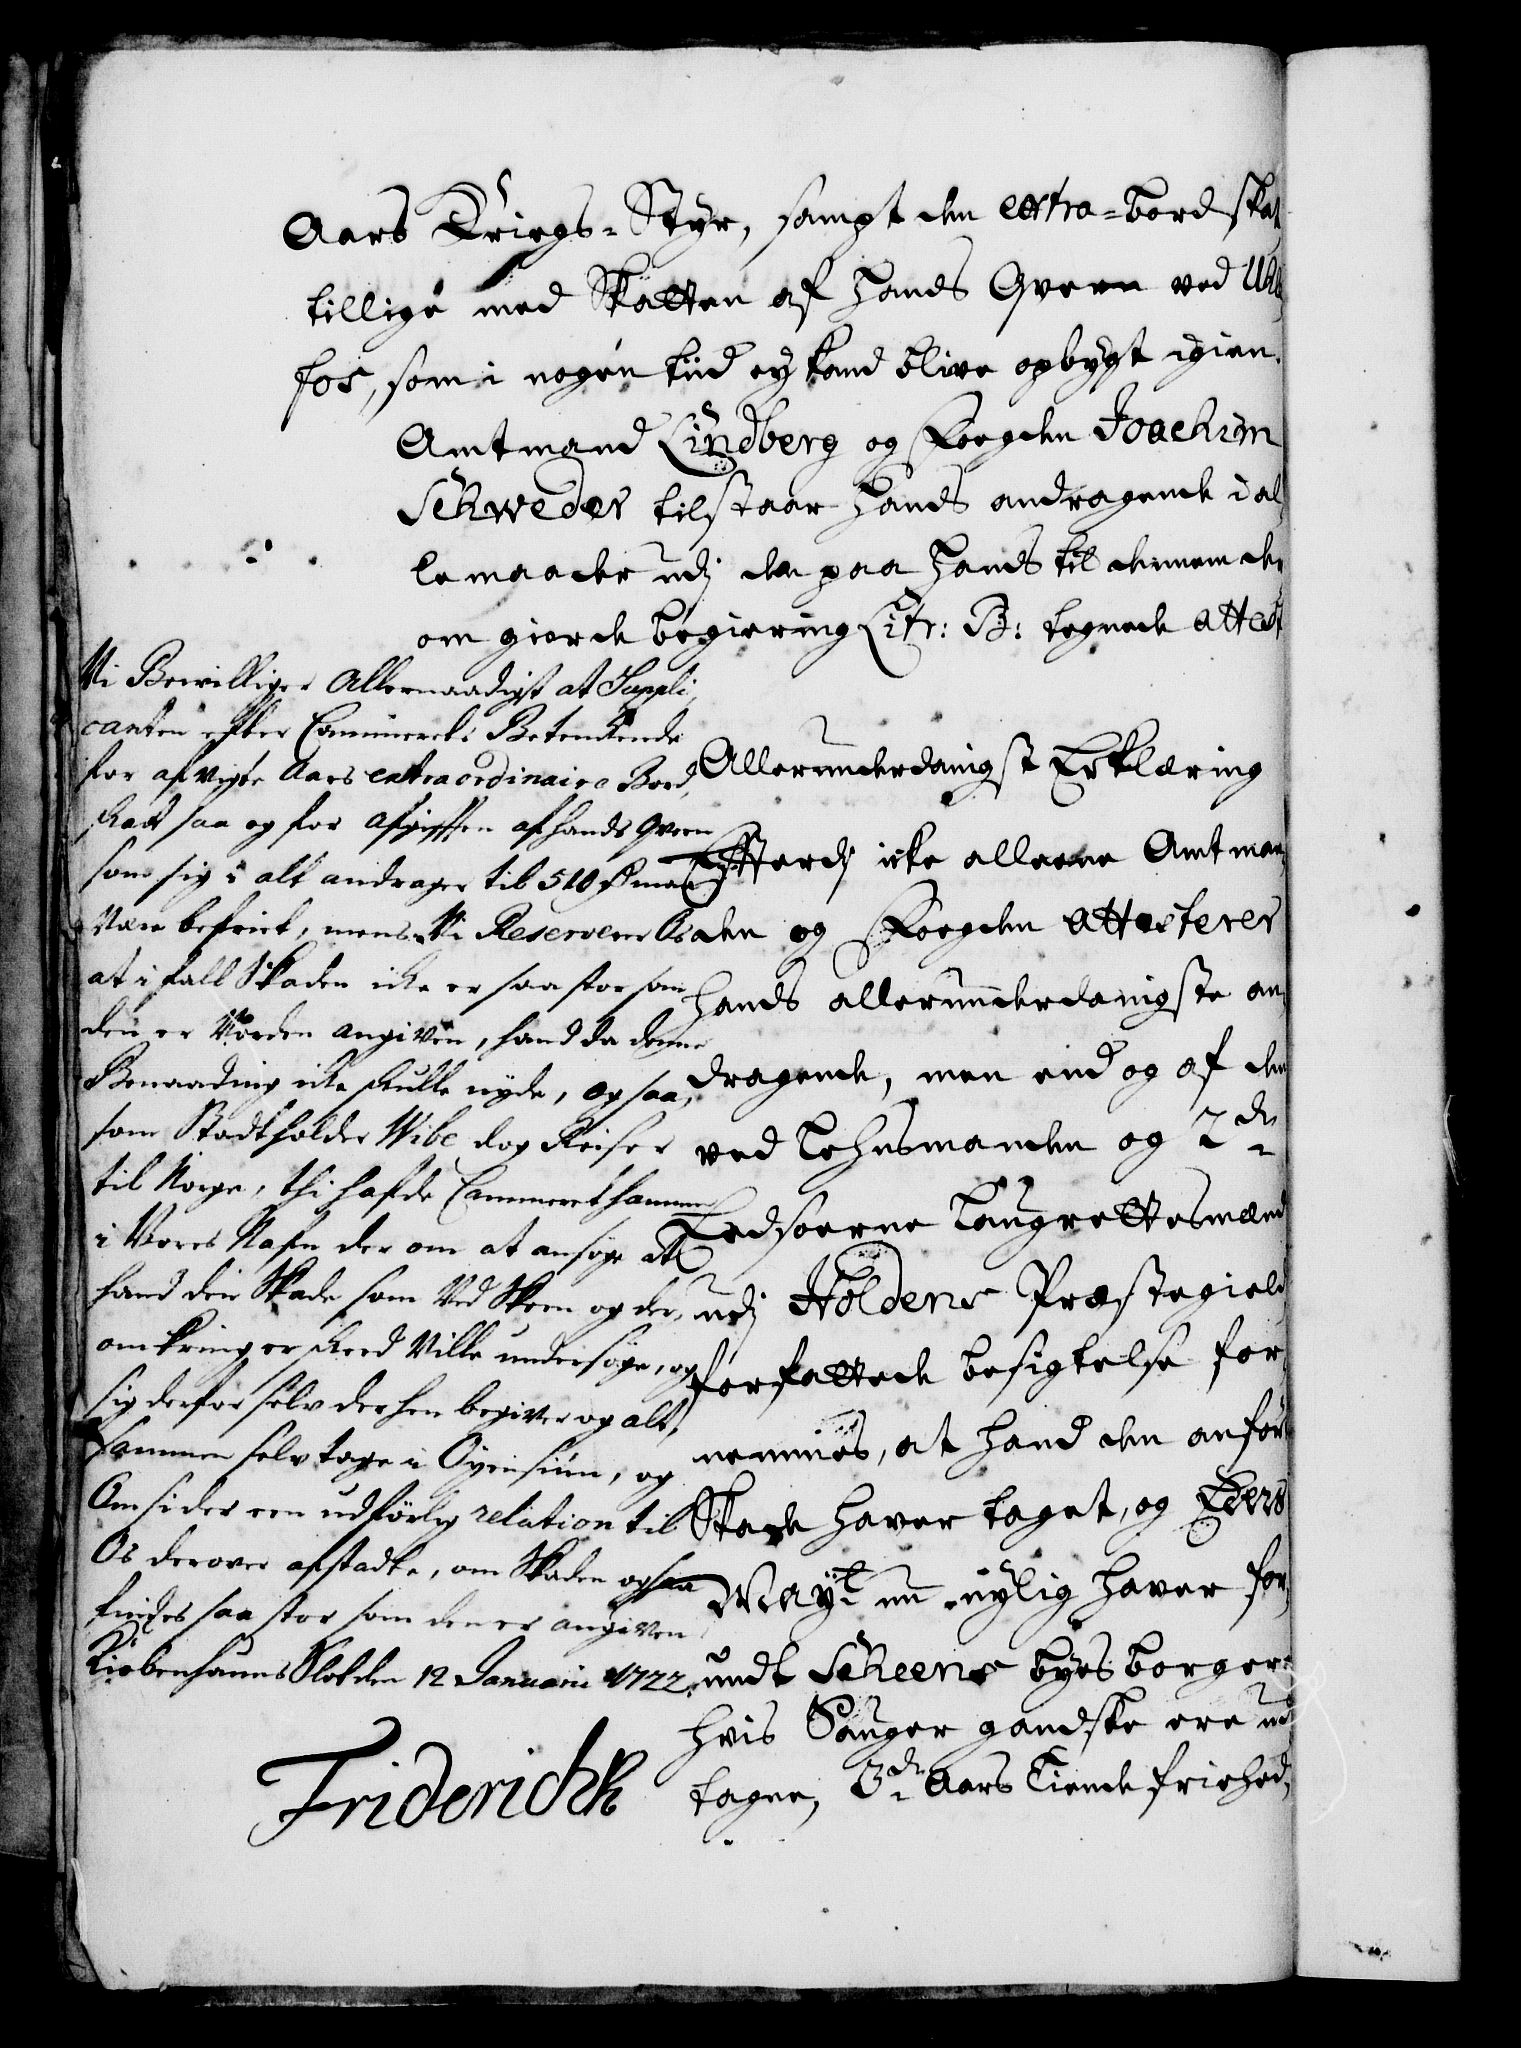 Aars Kriegs-Styr, sampt den extra-bord skat
tillige med Skatten af hands Qvern ved
fos, som i nogen tiid ey kand blive opbygt igien.
Amtmand Lindberg og Fogden Joachim
Schweder tilstaar hands andragende i al
le maader udj den paa hands til dennem der
om giorde begiering Litr: B: tegnede attest
Allerunderdanigst Erklæring
Efterdj icke alleene Amtman
den og Fogden attesterer
hands allerunderdanigste an
dragende, men end og af den
ved Lehnsmanden og 2de
Eedsoerne Laugrettesmænd
udj Holdens Præstegield
forfattede besigtelse for
nemmes, at hand den anförte
Skade haver taget, og Eders
Mayt nu nylig haver for
undt Scheens byes borgere
hvis Sauger gandske ere ud
tagne, 3de Aars Tiende friehed,
Vi Bewilliger Allernaadigst at Suppli
canten efter Cammerets Betenkende
for afvigte Aars extraordinaire Bord
skatt saa og for afgifften af hands Qvern
som sig i alt andrager til 510
være befriet, mens Vi Reserverer Os
at i fall Skaden icke er saa stor som
den er vorden angiven, hand da denne
Benaading icke skulle nyde, og saa
som Stadtholder Wibe dog Reiser
til Norge, thi hafde Cammeret hannem
i Vores Nafn der om at ansøge at
hand den Skade som Ved Skeen og der
omkring er skeed Ville undersøge, og
sig derfor selv der hen begiver og alt
sammen selv tage i Öyensiun, og
Omsider een udförlig relation til
Os derover afstadte, om Skaden ogsaa
findes saa stor som den er angiven
Kiøbenhauns Slot den 12 Januarii 1722.
Friderich